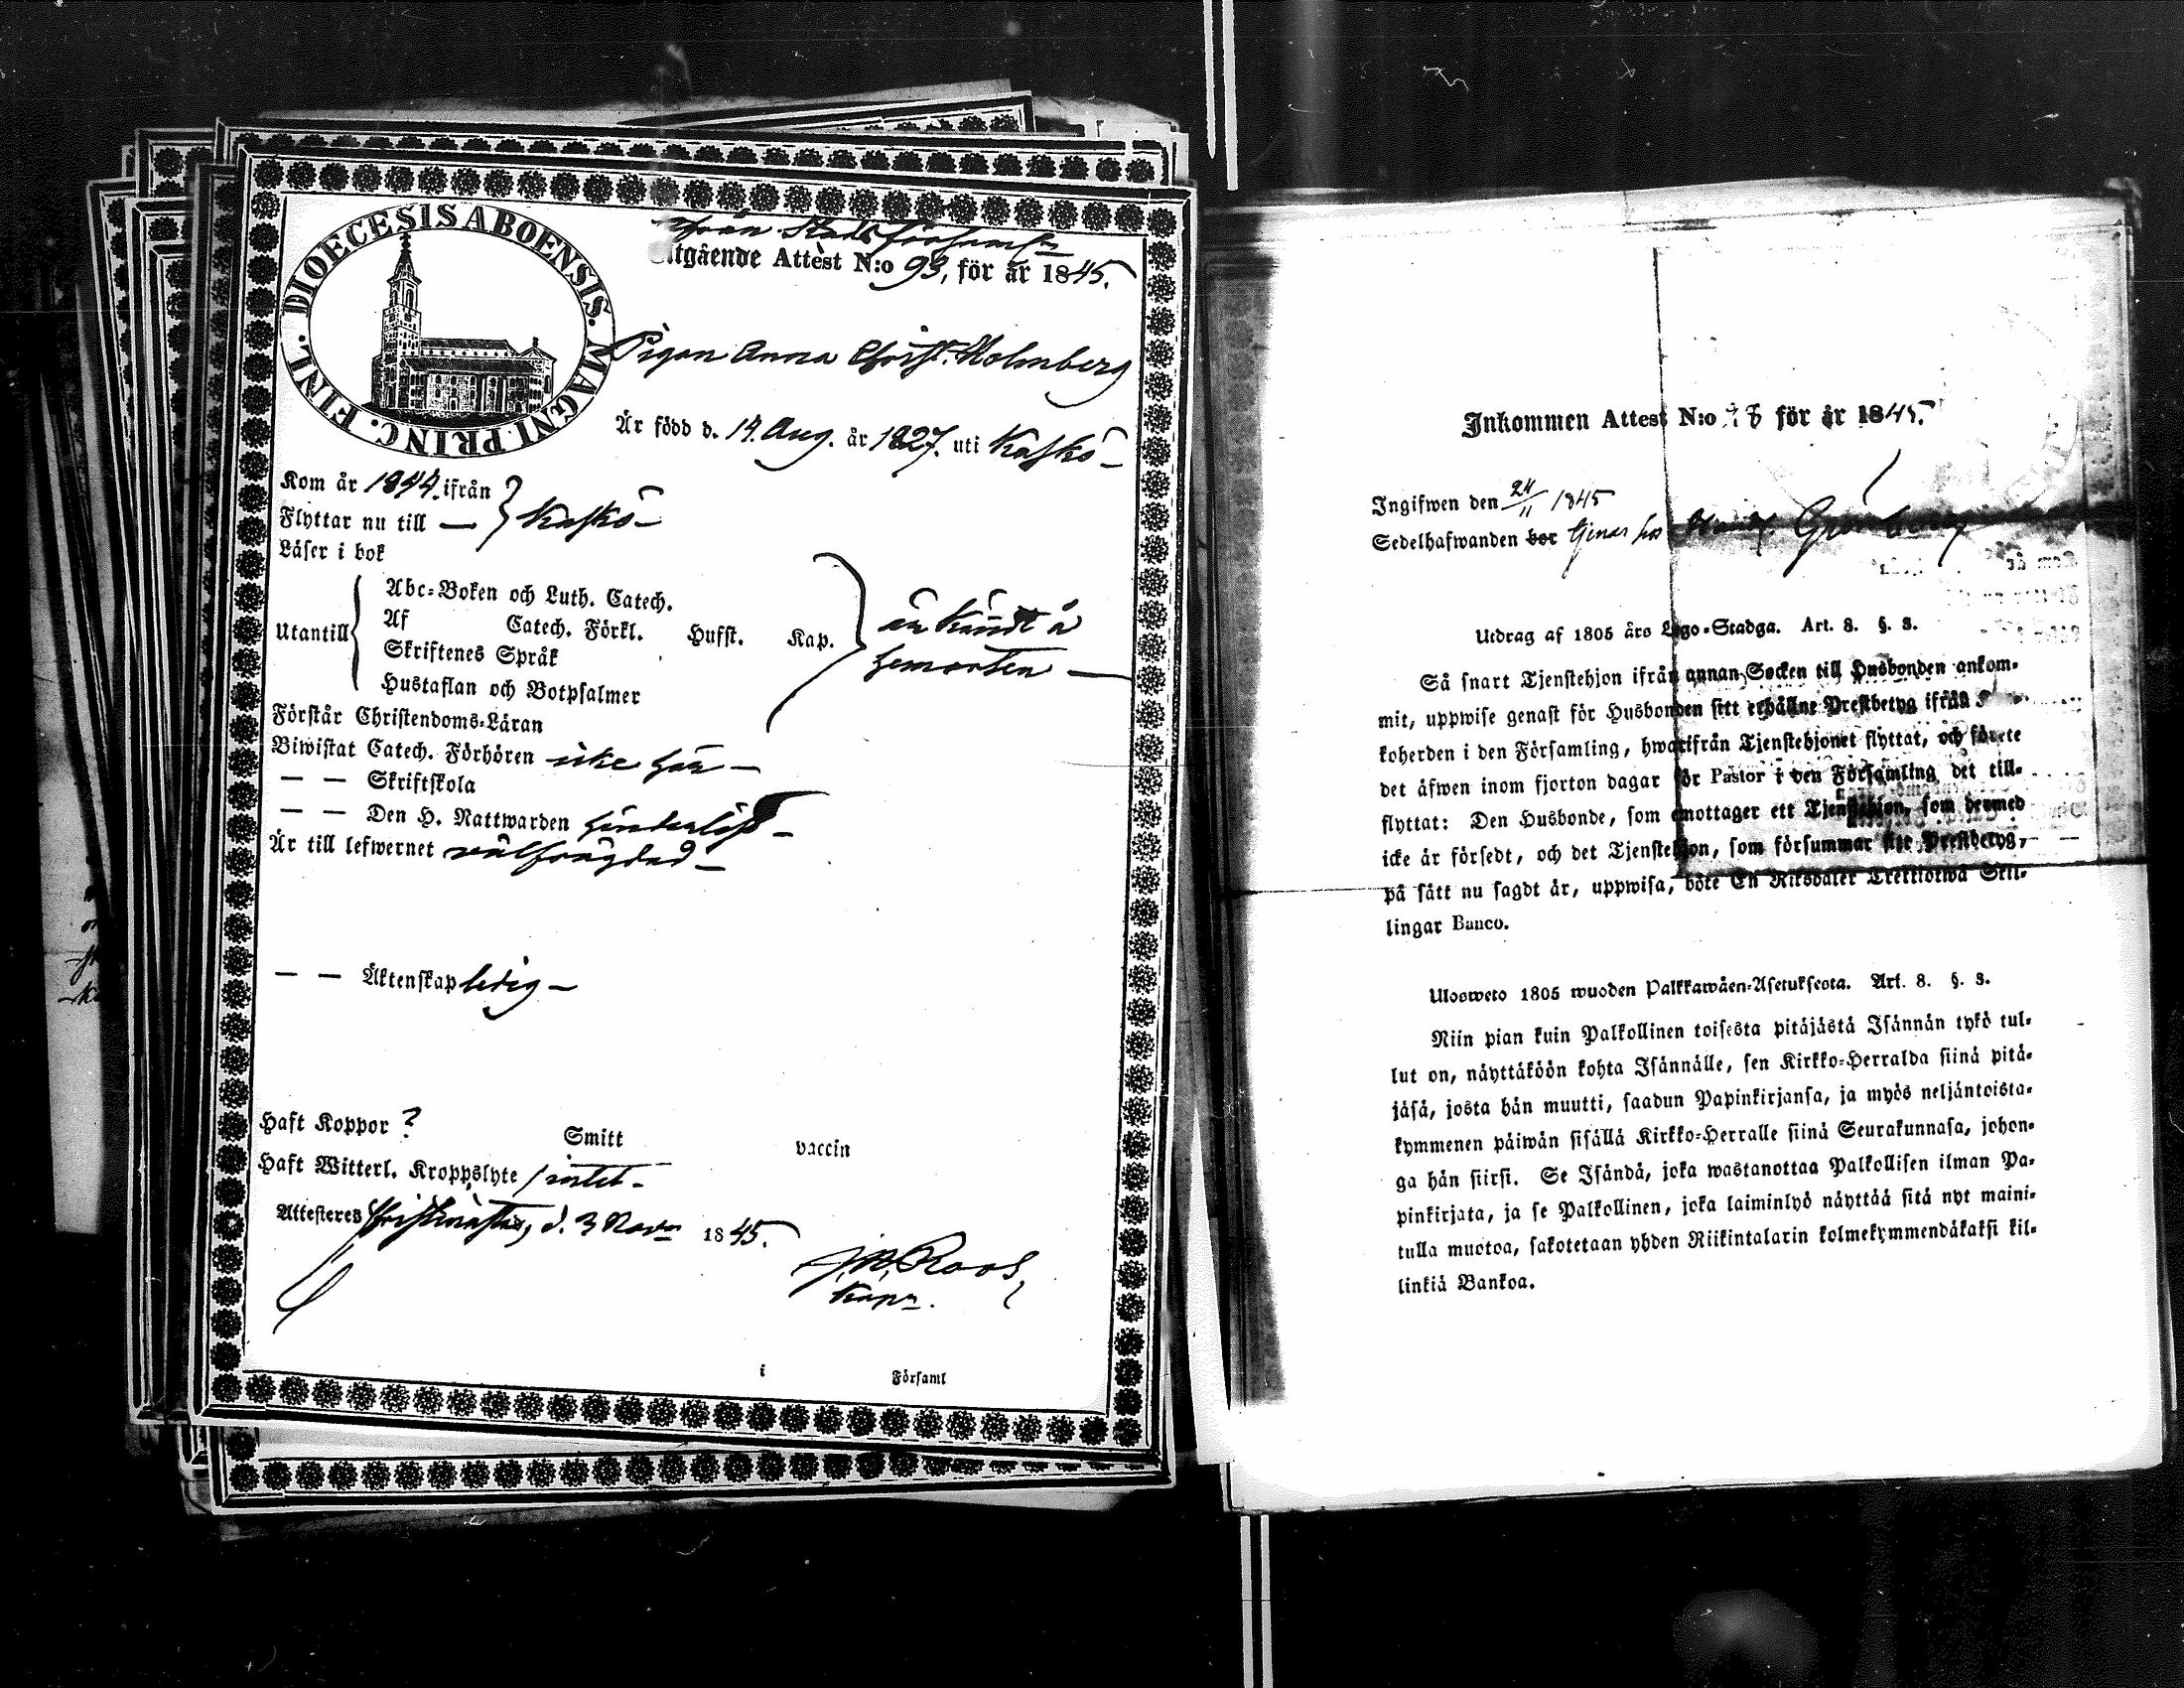 DIOECESIS ABOENSIS. MAGNI PRINC. FINL.
från Stads församln
Utgående Attest N:o 93, för år 1845.
Pigan Anna Christ. Holmberg
Är född d. 14. Aug. år 1827. uti Kaskö
Kom år 1844. ifrån
Flyttar nu till — } Kaskö
Läser i bok
Utantill
Abc-Boken och Luth. Catech.
Af Catech. Förkl. Hufst. Kap.
Skriftenes Språk
Hustaflan och Botpsalmer
är kändt å
hemorten —
Förstår Christendoms-Läran
Biwistat Catech. Förhören icke här —
— — Skriftskola
— — Den H. Nattwarden hinderlöst —
Är till lefwernet välfrägdad —
— — Äktenskap ledig —
Haft Koppor ? Smitt vaccin
Haft Witterl. Kroppslyte intet —
Attesteres Christinestad, d. 3 Novr 1845.
J. M. Roos,
Kapn.
i Församl
Inkommen Attest N:o 38 för år 1845.
Ingifwen den 24/11 1845
Sedelhafwanden bor tjenar hos Grönberg
Utdrag af 1805 års Lego-Stadga. Art. 8. §. 3.
Så snart Tjenstehjon ifrån annan Socken till Husbonden ankom-
mit, uppwise genast för Husbonden sitt erhållne Prestbetyg ifrån
koherden i den Församling, hwarifrån Tjenstehjonet flyttat, och förete
det äfwen inom fjorton dagar för Pastor i den Församling det till-
flyttat: Den Husbonde, som emottager ett Tjenstehjon, som dermed
icke är försedt, och det Tjenstehjon, som försummar sitt Prestbetyg,
på sätt nu sagdt är, uppwisa, böte En Riksdaler Trettiotwå Skil-
lingar Banco.
Ulosweto 1805 wuoden Palkkawäen-Asetuksesta. Art. 8. §. 3.
Niin pian kuin Palkollinen toisesta pitäjästä Isännän tykö tul-
lut on, näyttäköön kohta Isännälle, sen Kirkko-Herralda siinä pitä-
jäsä, josta hän muutti, saadun Papinkirjansa, ja myös neljäntoista-
kymmenen päiwän sisällä Kirkko-Herralle siinä Seurakunnasa, johon-
ga hän siirsi. Se Isändä, joka wastanottaa Palkollisen ilman Pa-
pinkirjata, ja se Palkollinen, joka laiminlyö näyttää sitä nyt maini-
tulla muotoa, sakotetaan yhden Riikintalarin kolmekymmendäkaksi kil-
linkiä Bankoa.